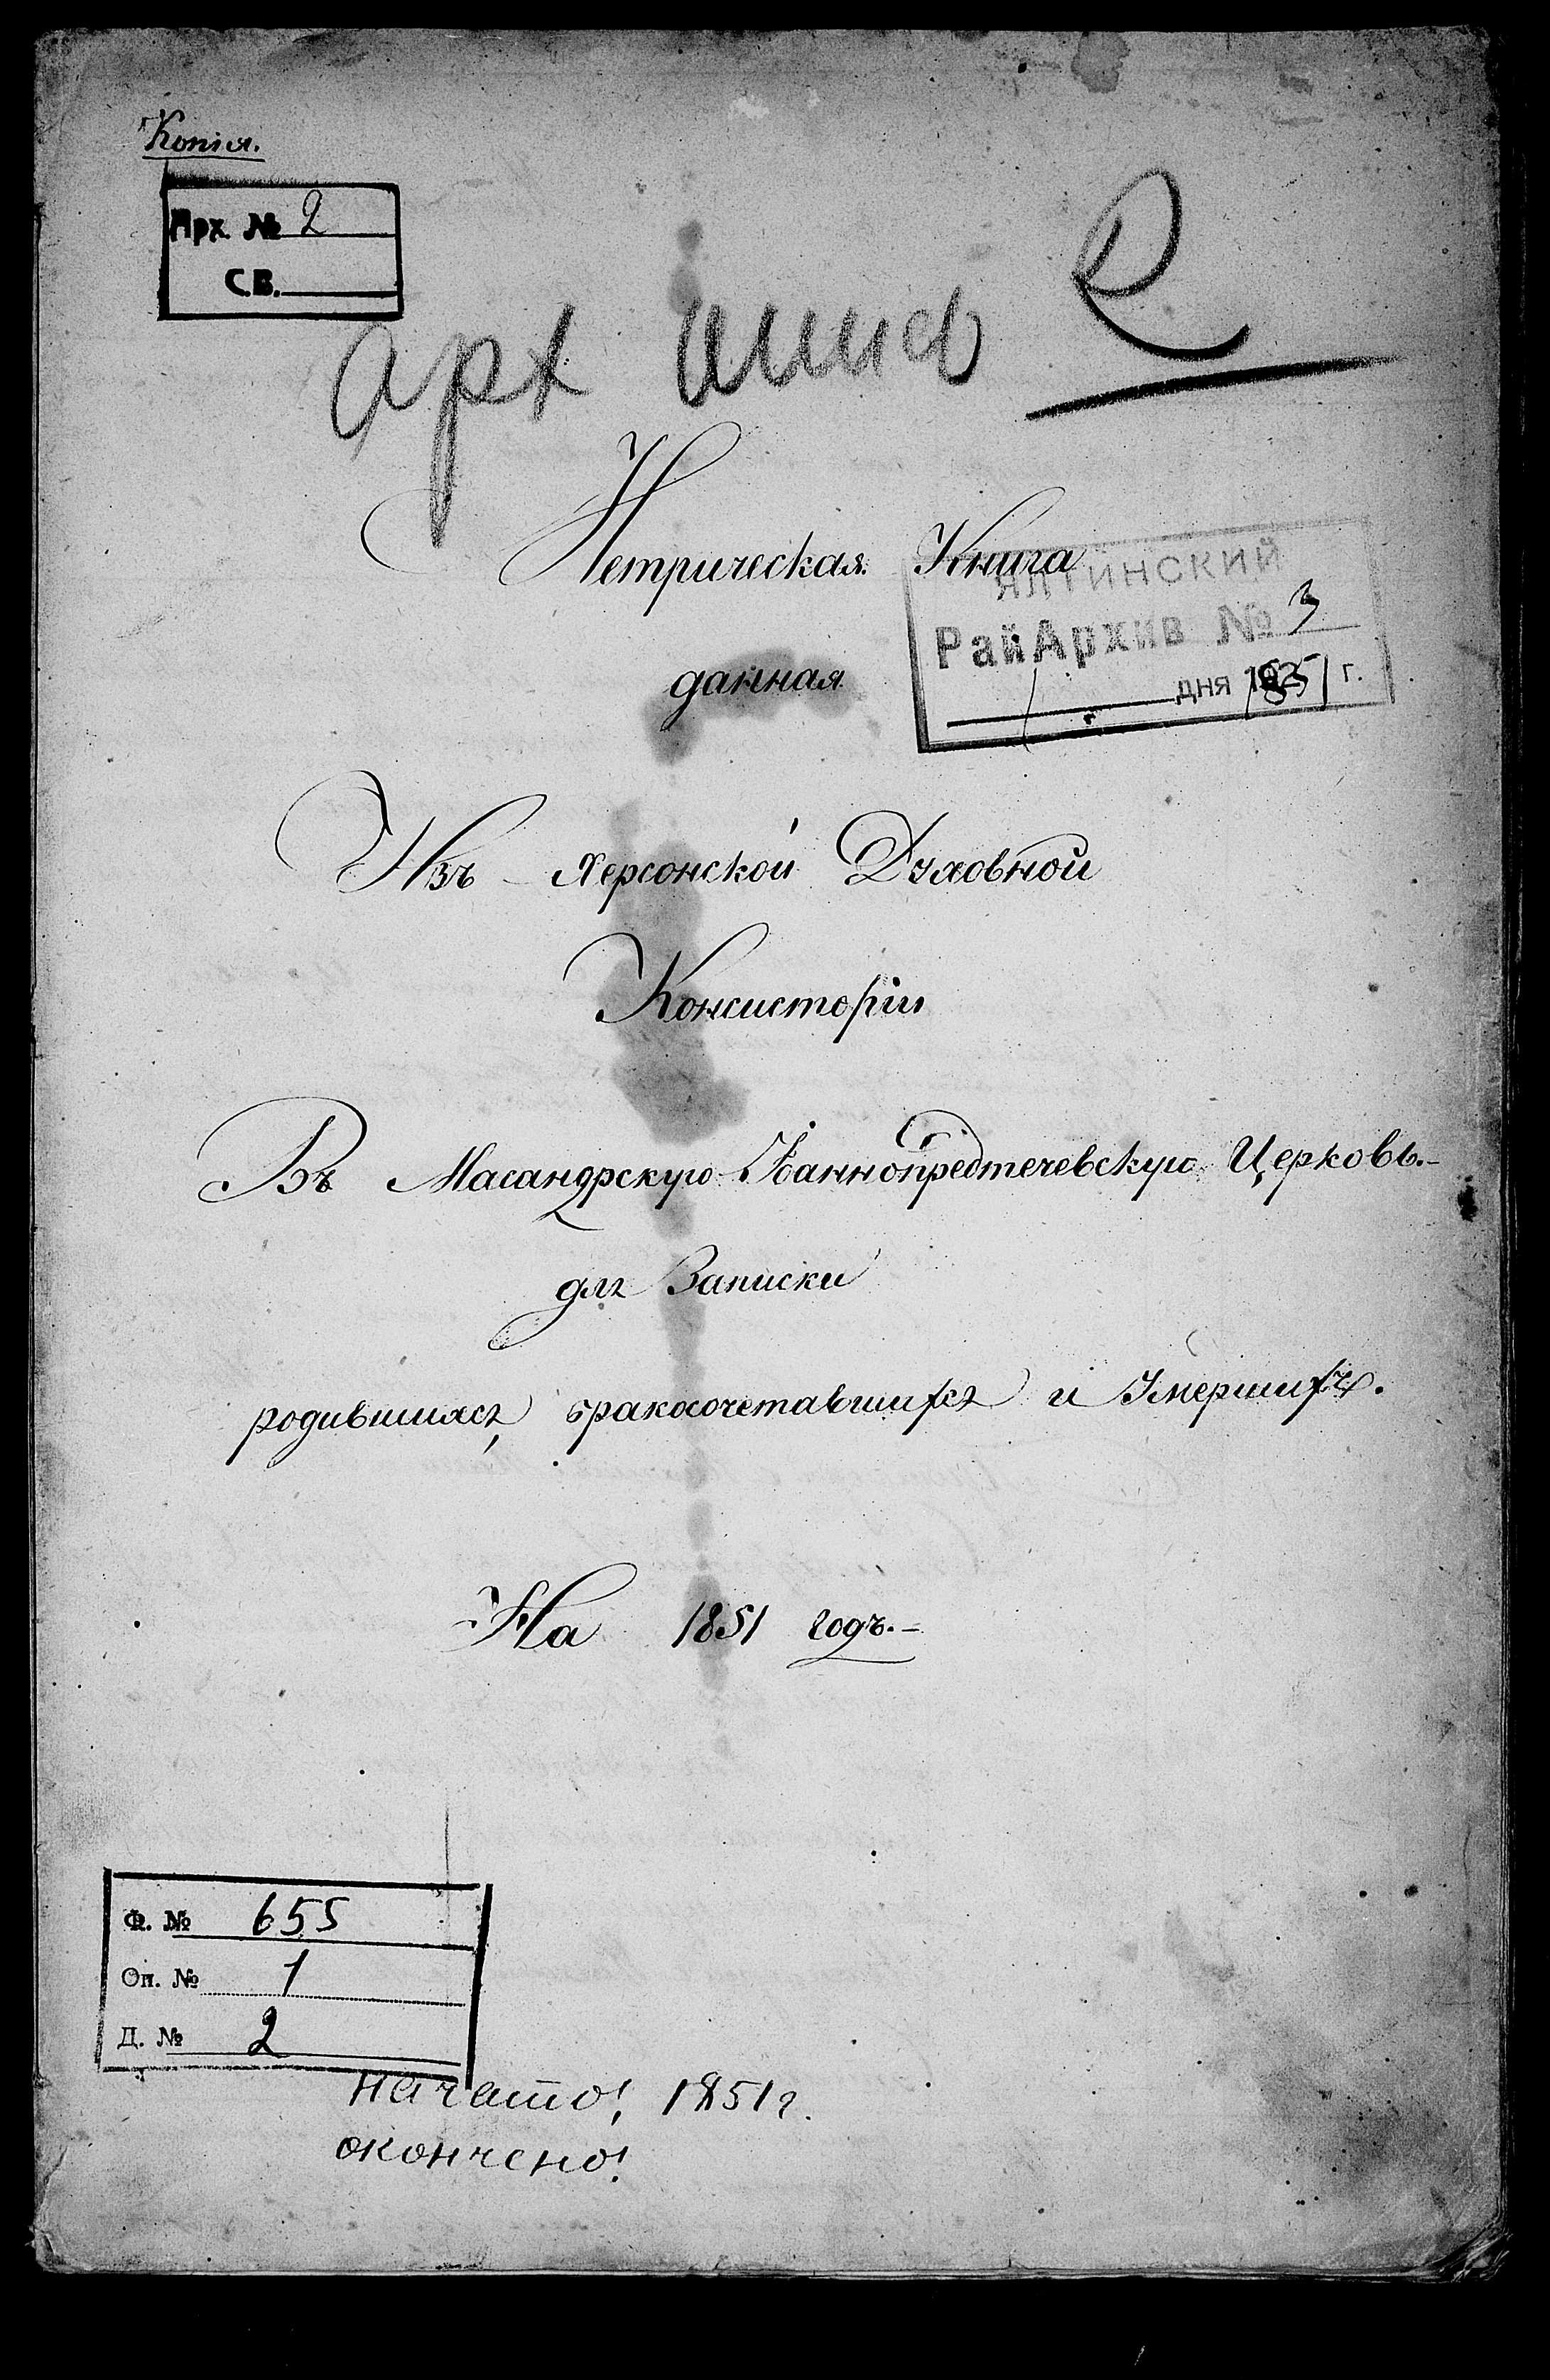 Копія.
Арх. № 2
С.В.
арх шиф 2
Метрическая Книга
ЯЛТИНСКИЙ
РайАрхив № 3
дня 1851 г.
данная
Изъ Херсонской Духовной
Консисторіи
Въ Масандрскую Іоаннопредтечевскую Церковь.-
для Записки
родившихся, бракосочетавшихся и Умершихъ.
На 1851 годъ.-
Ф. № 655
Оп. № 1
Д. № 2
начато: 1851 г.
окончено: